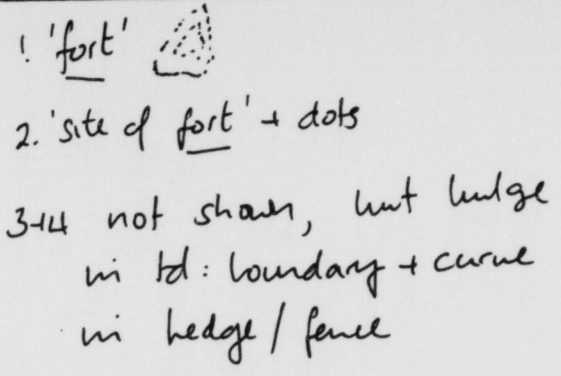 1. 'fort'
2. 'site of fort' + dots
3+4 not shown, but bulge
in td: boundary + curve
in hedge / fence